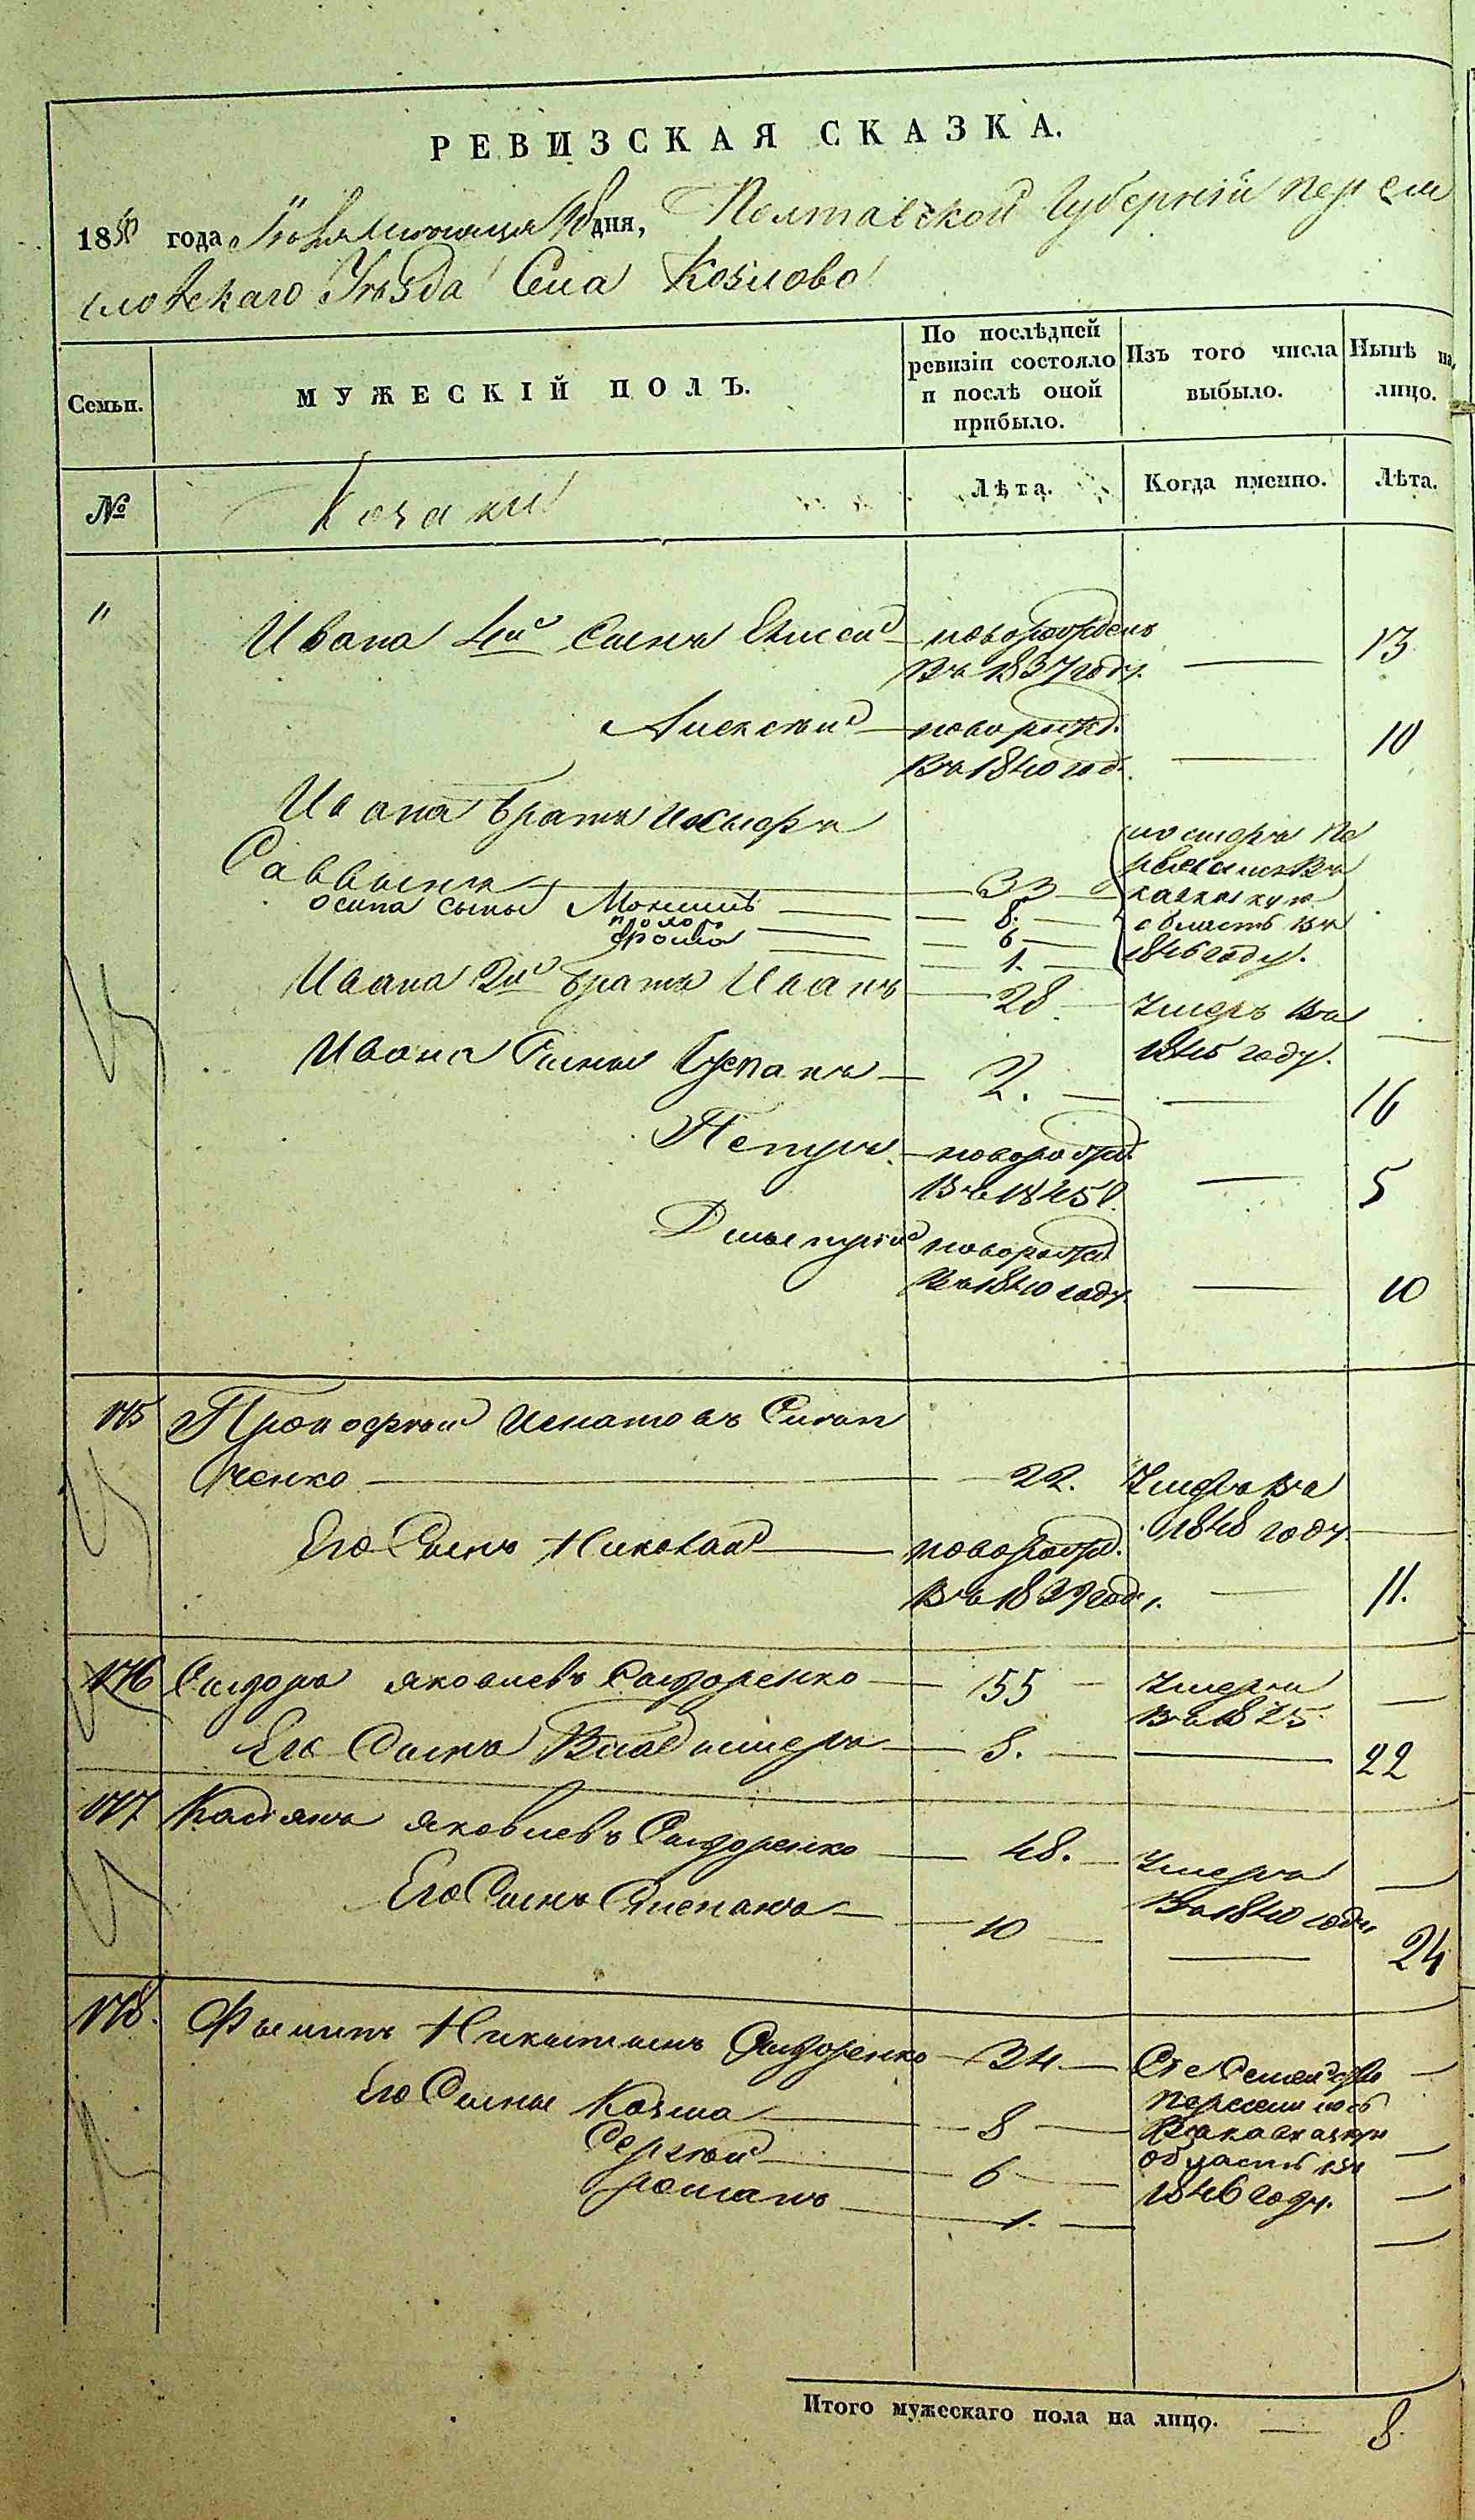 РЕВИЗСКАЯ СКАЗКА.
1850 года Июня месяца дня, Полтавской Губернии Переяс
ловскаго Уѣзда Села Козлова
Семьи.
МУЖЕСКІЙ ПОЛЪ.
По послѣдней ревизіи состояло и послѣ оной прибыло.
Изъ того числа выбыло.
Нынѣ на лицо.
№
Козаки
Лѣта.
Когда именно.
Лѣта.
" Ивана 4й Сынъ Елисей новорожденъ — 13
въ 1837 году.
Алексѣй новорожд. — 10
въ 1840 год.
Ивана братъ
Саввинъ — 33
Осипа сыны Моисей — 8.
6
Фома — 1.
переселен въ
область въ
1846 году.
Ивана 2й братъ Иванъ — 28 Умеръ въ —
1845 году.
Ивана Сыны Степанъ — 2. — 16
Петръ новорожд. — 5
въ 1845 г.
Дмитрій новорожд. — 10
въ 1840 году.
175 Прокофій Игнатовъ
ченко — 22. Умеръ въ
1848 году —
Его Сынъ Николай новорожд. — 11.
въ 1839 год.
176 Сидоръ Яковлевъ Сидоренко — 55 — Умеръ —
въ 1825.
Его Сынъ Владимеръ — 8. — 22
177 Касіянъ Яковлевъ Сидоренко — 48. — Умеръ —
въ 1840 году
Его Сынъ Степанъ — 10 — 24
178. Филипъ Никитинъ Сидоренко — 34 — Сіе Семейство —
Его Сыны Козма — 8 — переселилось —
Сергѣй — 6 — область въ —
Романъ — 1. — 1846 году. —
Итого мужескаго пола на лицо. — 8.